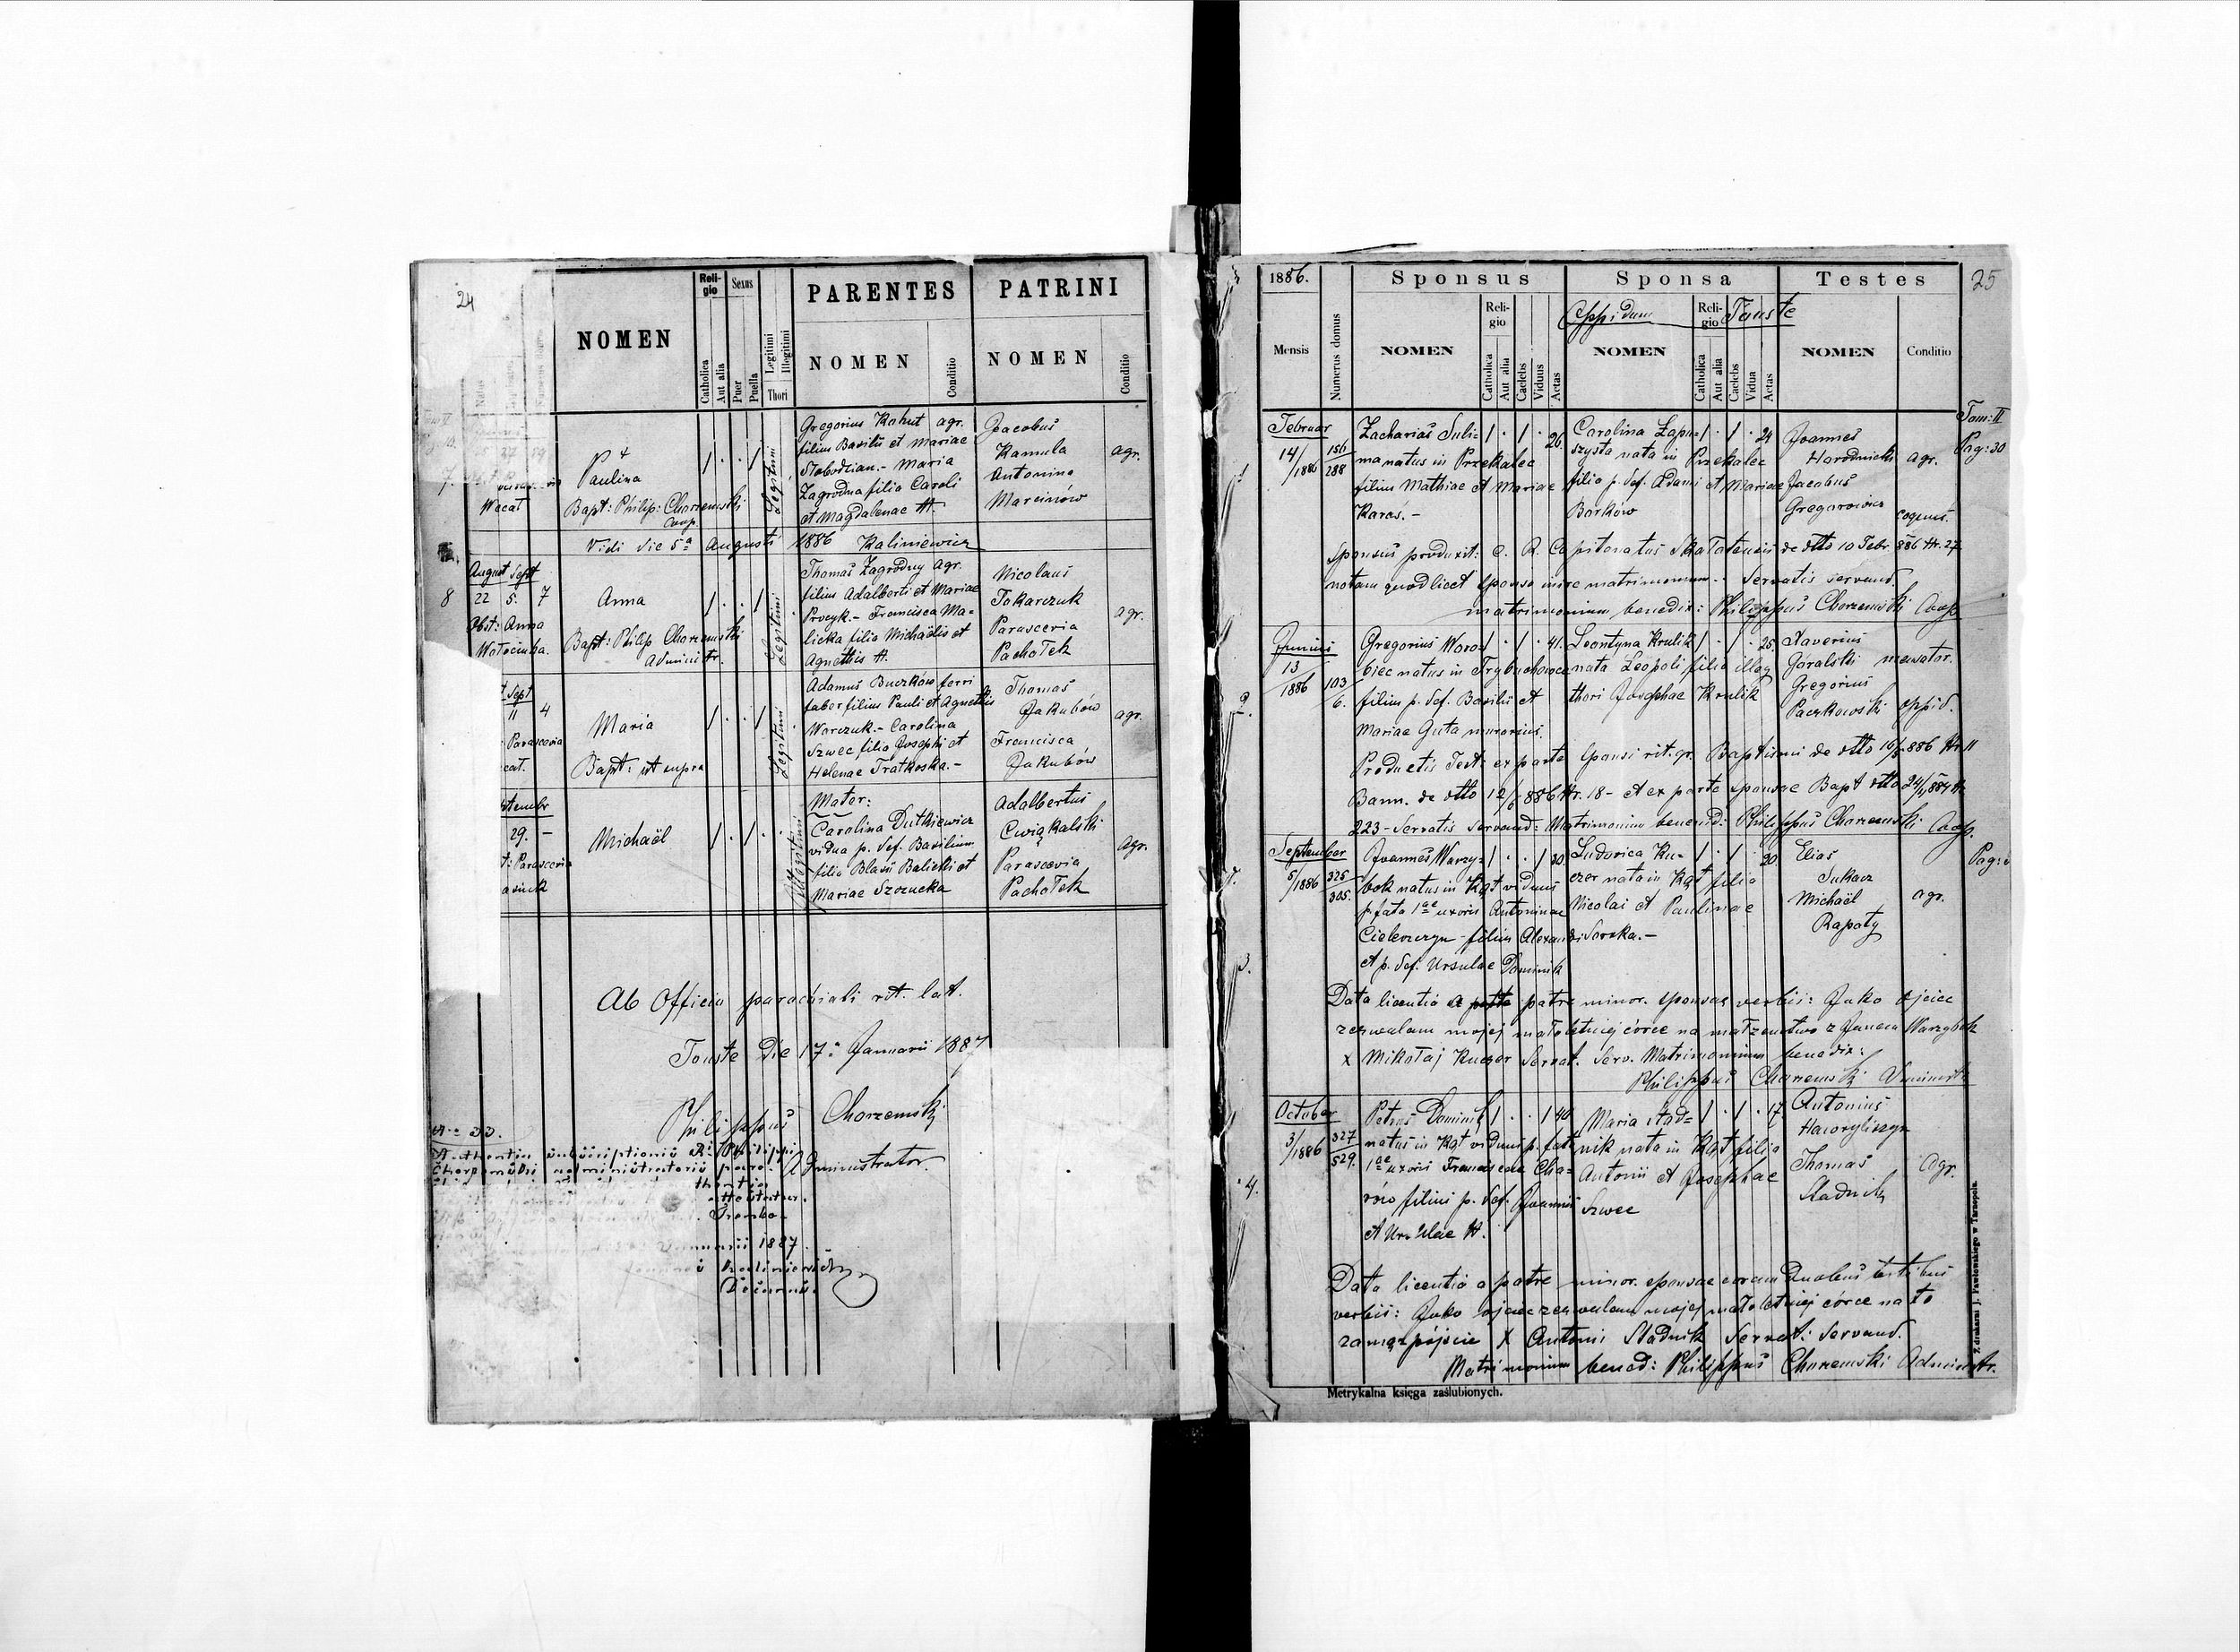 24
NOMEN
Reli-
gio
Sexus
Catholica
Aut alia
Puer
Puella
Legitimi
Illegitimi
Thori
PARENTES
NOMEN
Conditio
PATRINI
NOMEN
Conditio
7.
Wacat
Paulina
Bapt: Philip: Chorzemski
Coop.
Legitimi
Gregorius Kohut agr.
filius Basilii et Mariae
Slobodzian.- Maria
Zagrodna filia Caroli
et Magdalenae H.
Jacobus
Kamula
Antonina
Marcinów
agr.
Vidi die 5ª Augusti 1886 Kaliniewicz
August Sept
8 22 5. 7
Obst: Anna
Wołocinka.
Anna
Bapt: Philip Chorzemski
Administr.
Legitimi
Thomas Zagrodny agr.
filius Adalberti et Mariae
Procyk.- Francisca Ma-
licka filia Michaëlis et
Agnethis H.
Nicolaus
Tokarczuk
Parascevia
Pachołek
agr.
Sept
11 4
Parascevia
cat.
Maria
Bapt: ut supra
Legitimi
Adamus Buczków ferri
faber filius Pauli et Agnethis
Worczuk.- Carolina
Szwec filia Josephi et
Helenae Tratkoska.-
Thomas
Jakubów
Francisca
Jakubów
agr.
29. -
t: Parascevia
Michaël
Illegitimi
Mater:
Carolina Dutkiewicz
vidua p. def. Basilium
filia Blasii Balicki et
Mariae Szozucka
Adalbertus
Cwiąkalski
Parascevia
Pachołek
agr.
Ab Officio parochiali rit. lat.
Touste Die 17ª Januarii 1887
Philippus Chorzemski
Administrator.
subscriptionis
Chorzemski administratoris
Januarii 1887
Kaliniewicz
Decanus.
25
1886.
Sponsus
Sponsa
Testes
Oppidum Touste
Mensis
Numerus domus
NOMEN
Reli-
gio
Catholica
Aut alia
Caelebs
Viduus
Aetas
NOMEN
Reli-
gio
Catholica
Aut alia
Caelebs
Vidua
Aetas
NOMEN
Conditio
Tom: II
Pag: 30
1.
Februar
14/1886
156
288
Zacharias Suli- 1 . 1 . 26.
ma natus in Przekalec
filius Mathiae et Mariae
Karas.-
Carolina Łapu- 1 . 1 . 24
szysta nata in Przekalec
filia p. def. Adami et Mariae
Borków
Joannes
Horodnicki agr.
Jacobus
Gregorowicz coquus.
Sponsus produxit: C. R. Capitanatus Skałatensis de dtto 10 Febr. 886 Nr. 27
notam quod licet sponso inire matrimonium.- Servatis servand.
matrimonium benedix: Philippus Chorzemski Coop
2.
Junius
13
1886
103
6.
Gregorius Woro- 1 . 1 . 41.
biec natus in Trybuchowce
filius p. def. Basilii et
Mariae Guta murarius.
Leontyna Krulik 1 . 1 . 25.
nata Leopoli filia illeg
thori Josephae Krulik
Xaverius
Goralski mercator.
Gregorius
Paczkowski oppid.
Productis Test: ex parte Sponsi rit. gr. Baptismi de dtto 16/5 886 Nr. 11
Bann. de dtto 12/6 886 Nr. 18- et ex parte sponsae Bapt dtto 24/
223- Servatis servand: Matrimonium benedix: Philippus Chorzemski Coop.
3.
September
5/1886
325
305.
Joannes Warzy- 1 . . 1 30
bok natus in Kąt viduus
p. fata 1ae uxoris Antoninae
Cieleszczyn- filius Alexandri
et p. def. Ursulae Dominik
Ludovica Ku- 1 . 1 20
czer nata in Kąt filia
Nicolai et Paulinae
Soroka.-
Elias
Sukacz
Michaël
Rapaty
agr.
Data licentia a patre minor. sponsae verbis: Jako ojciec
zezwalam mojej małoletniej córce na małżeństwo z Janem Warzybok
X Mikołaj Kuczer Servat. Serv. Matrimonium benedix:
Philippus Chorzemski Administr
4.
October
3/1886
327
529.
Petrus Dominik 1 . . 1 40
natus in Kąt viduus p. fata
1ae uxoris Franciscae Cha-
rów filius p. def. Joannis
et Ursulae H.
Maria Stad- 1 . 1 . 17
nik nata in Kąt filia
Antonii et Josephae
Szwec
Antonius
Haworyliszyn
Thomas
Stadnik
Agr.
Data licentia a patre minor. sponsae coram duobus testibus
verbis: Jako ojciec zezwalam mojej małoletniej córce na to
zamążpójście X Antoni Stadnik Servat: servand.
Matrimonium bened: Philippus Chorzemski Administr.
Metrykalna księga zaślubionych.
Z drukarni J. Pawłowskiego w Tarnopolu.